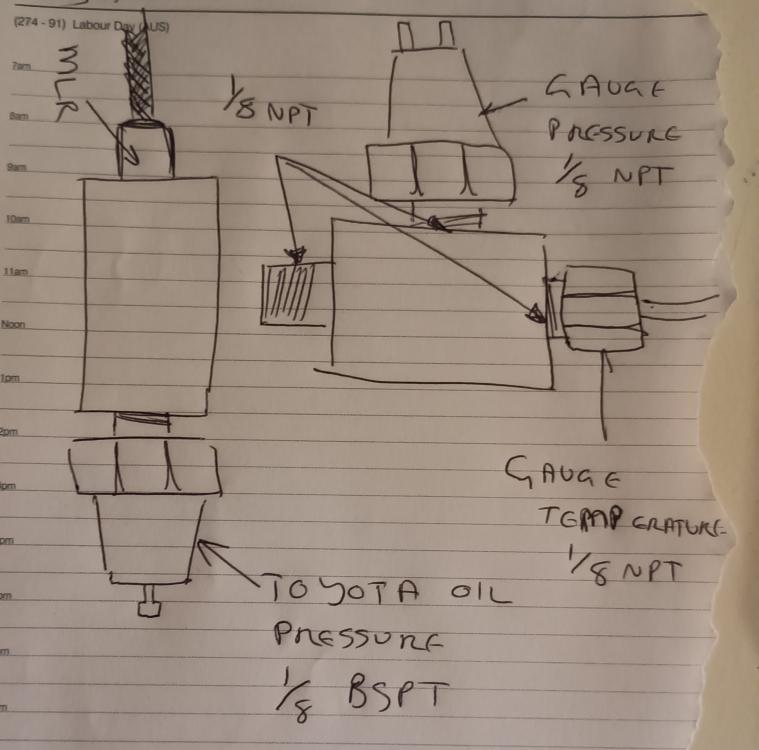 (274 - 91) Labour Day (AUS)
7am
8am
9am
10am
11am
Noon
1pm
2pm
pm
pm
pm
m
m
MLR
1/8 NPT
GAUGE
PRESSURE
1/8 NPT
GAUGE
TEMPERATURE
1/8 NPT
TOYOTA OIL
PRESSURE
1/8 BSPT